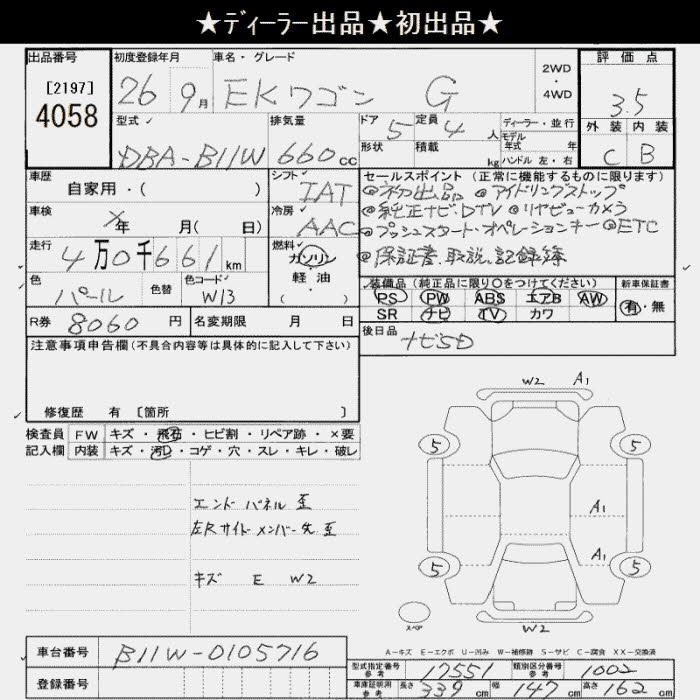 ★ディーラー出品★初出品★
出品番号 [2197] 4058
初度登録年月 26 9月
車名・グレード EKワゴン G
2WD・4WD
評価点 3.5
外装 内装
C B
型式 DBA-B11W
排気量 660cc
ドア 5 定員 4人
形状 積載 kg
ディーラー・並行
モデル年式 年式
ハンドル 左・右
車歴 自家用・( )
シフト IAT
セールスポイント (正常に機能するものに限ります)
◎初出品 ◎アイドリングストップ
◎純正ナビ.DTV ◎リヤビューカメラ
◎プッシュスタート・オペレーションキー ◎ETC
◎保証書.取説.記録簿
車検 メ年 月( 日)
冷房 AAC
走行 4万0千661km
燃料 ガソリン 軽油・
色 パール 色替 色コード W13
装備品 (純正品に限り〇をつけてください)
PS PW ABS エアB AW
SR ナビ TV カワ
新車保証書 有・無
R券 8060円
名変期限 月 日
後日品 ナビSD
注意事項申告欄(不具合内容等は具体的に記入して下さい)
修復歴 有 [箇所 ]
検査員 FW キズ・飛石・ヒビ割・リペア跡・×要
記入欄 内装 キズ・汚レ・コゲ・穴・スレ・キレ・破レ
エンドパネル 歪
左Rサイドメンバー先 歪
キズ E W2
W2 A1
5 5
A1
A1
5 5
スペア
W2
A-キズ E-エクボ U-凹み W-補修跡 S-サビ C-腐食 XX-交換済
車台番号 B11W-0105716
登録番号
型式指定番号 参考 17551 類別区分番号 参考 1002
車庫証明用 参考 長さ 339cm 幅 147cm 高さ 162cm